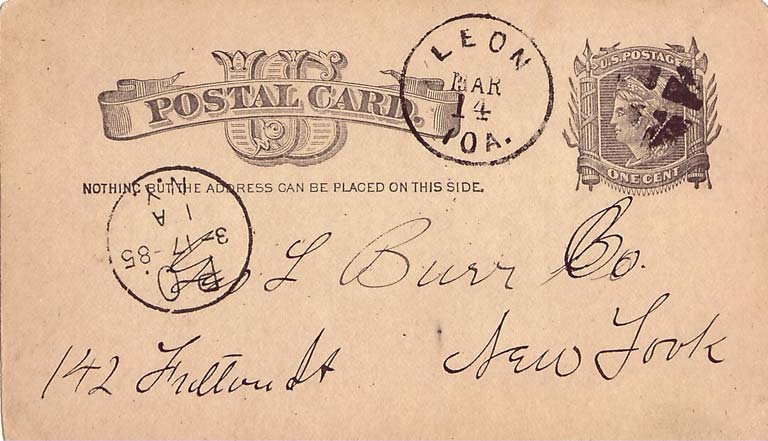 US
POSTAL CARD.
LEON
MAR
14
IOA.
U.S. POSTAGE
ONE CENT
NOTHING BUT THE ADDRESS CAN BE PLACED ON THIS SIDE.
N.Y.
1 A
3-17-85
P O
L Burr Co.
142 Fulton St
New York